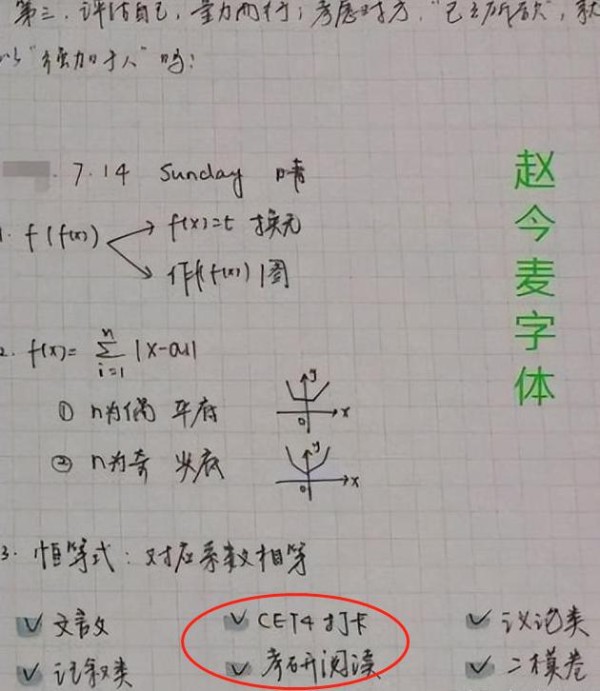 第三，评估自己，量力而行；考虑对方，"己之所欲"，就
以"强加于人"吗？
7.14 Sunday 晴
1. f(f(x)) f(x)=t 换元
作f(f(x))图
2. f(x)= n∑i=1 |x-ai|
① n为偶 平底 y x 0
② n为奇 尖底 y x 0
3. 恒等式：对应系数相等
文言文 CET4打卡 议论类
记叙类 考研阅读 二模卷
赵今麦字体